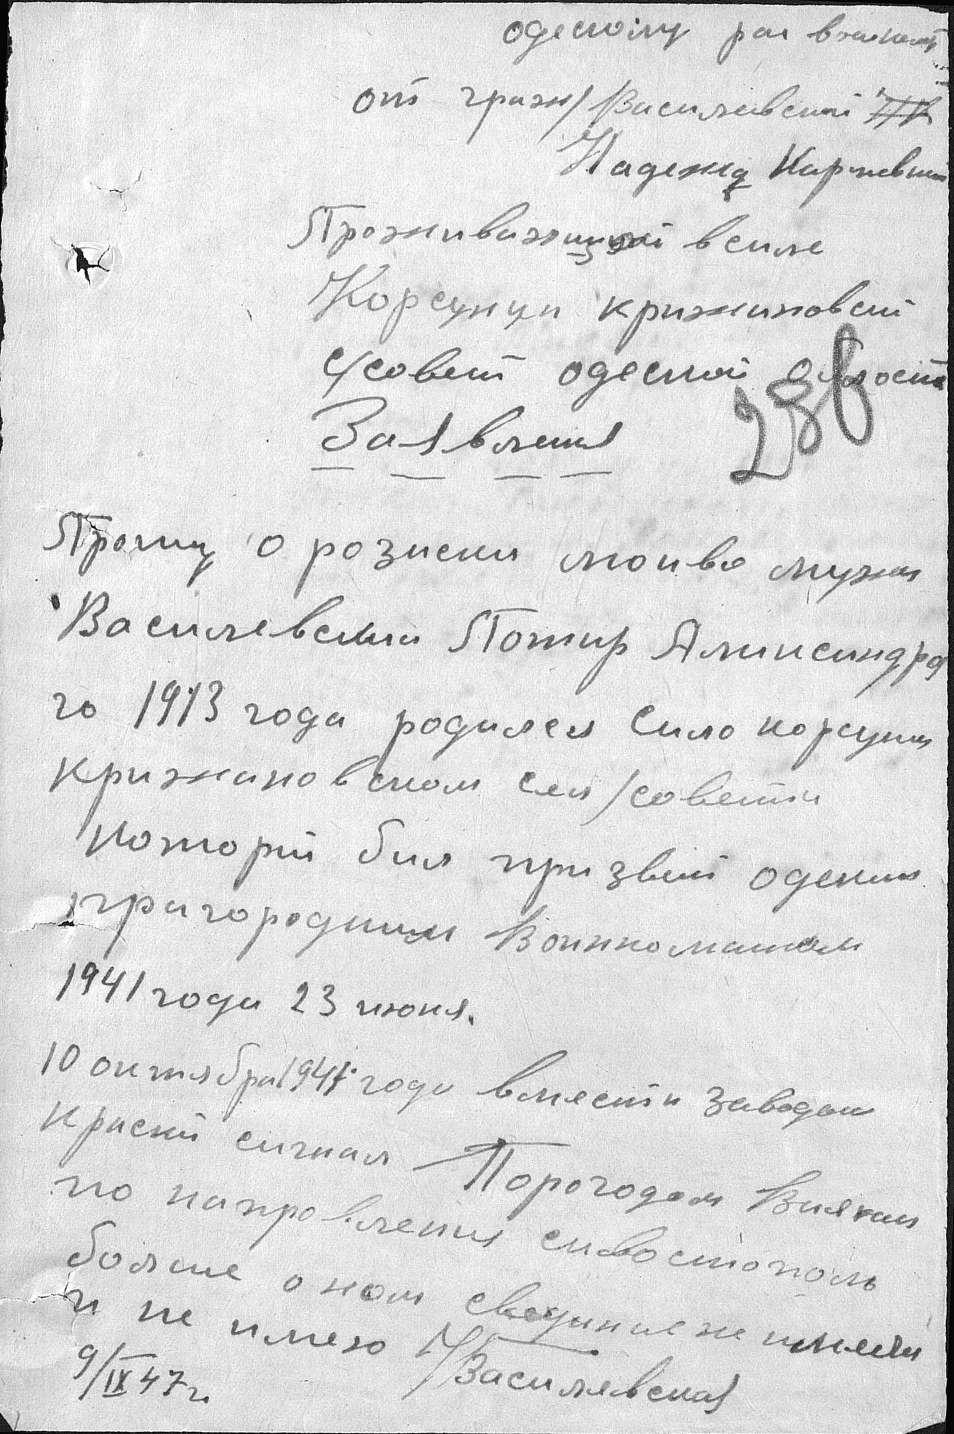 одескому рай военкомат
от граж/Василевской
Надежд Карповни
Проживающей в силе
Корсунци крижановски
с/совет одеской области
288
Заявления
Прошу о розиски моиво мужа
Василевский Пётир Алиисандро
го 1913 года родился Сило корсунци
крижановском сел/совети
которий бил призвий одеским
пригородним Воинкоматом
1941 года 23 июня.
10 октября 1941 года вмести заводом
краский сигнал Пороходом
по направления сивостополь
больше о ном свединия не имела
и не имею Н/Василевская
9/IX 47 г.